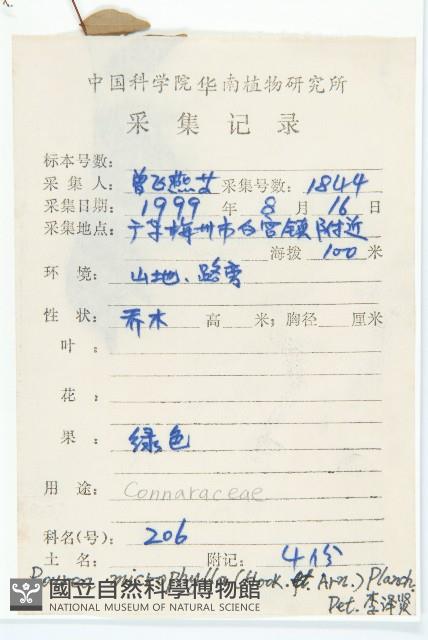 中国科学院华南植物研究所
采集记录
标本号数：
采集人：曾飞燕 采集号数：1844
采集日期：1999年8月16日
采集地点：广东梅州市白宫镇附近
海拨 100 米
环境：山地、路旁
性状：乔木 高 米；胸径 厘米
叶：
花：
果：绿色
用途： Connaraceae
科名(号)：206
土名： 附记：4份
Rourea microphylla (Hook. et Arn.) Planch.
Det. 李泽贤
國立自然科學博物館
NATIONAL MUSEUM OF NATURAL SCIENCE